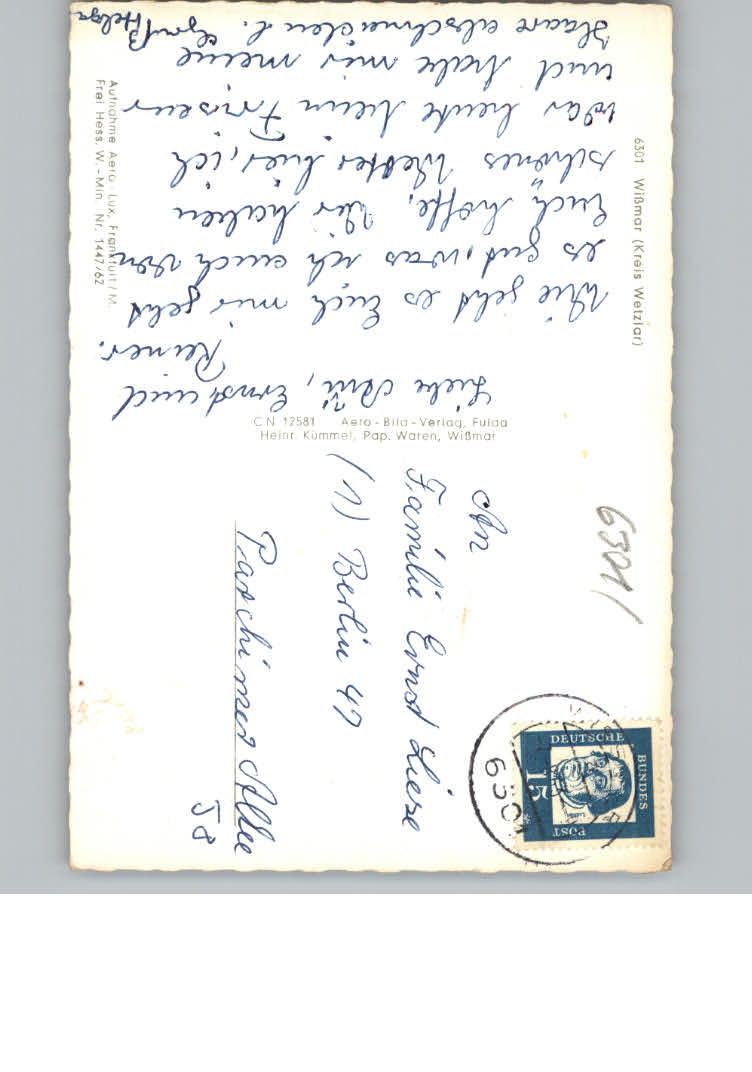 6301 Wißmar (Kreis Wetzlar)
Liebe Ernst und
Reiner.
Wie geht es Euch mir geht
es gut, was ich auch von
Euch hoffe. Wir haben
schönes Wetter hier, ich
war heute beim Friseur
und habe mir meine
Haare abschneiden l. Gruß
Helga
Aufnahme Aero-Lux, Frankfurt/M.
Frei Hess. W.-Min. Nr. 1447/62
C N 12581 Aero-Bild-Verlag, Fulda
Heinr. Kümmel, Pap. Waren, Wißmar
6301/
DEUTSCHE
BUNDES
POST
15
6301
An
Familie Ernst Liese
(1) Berlin 47
Parchimer Allee
58